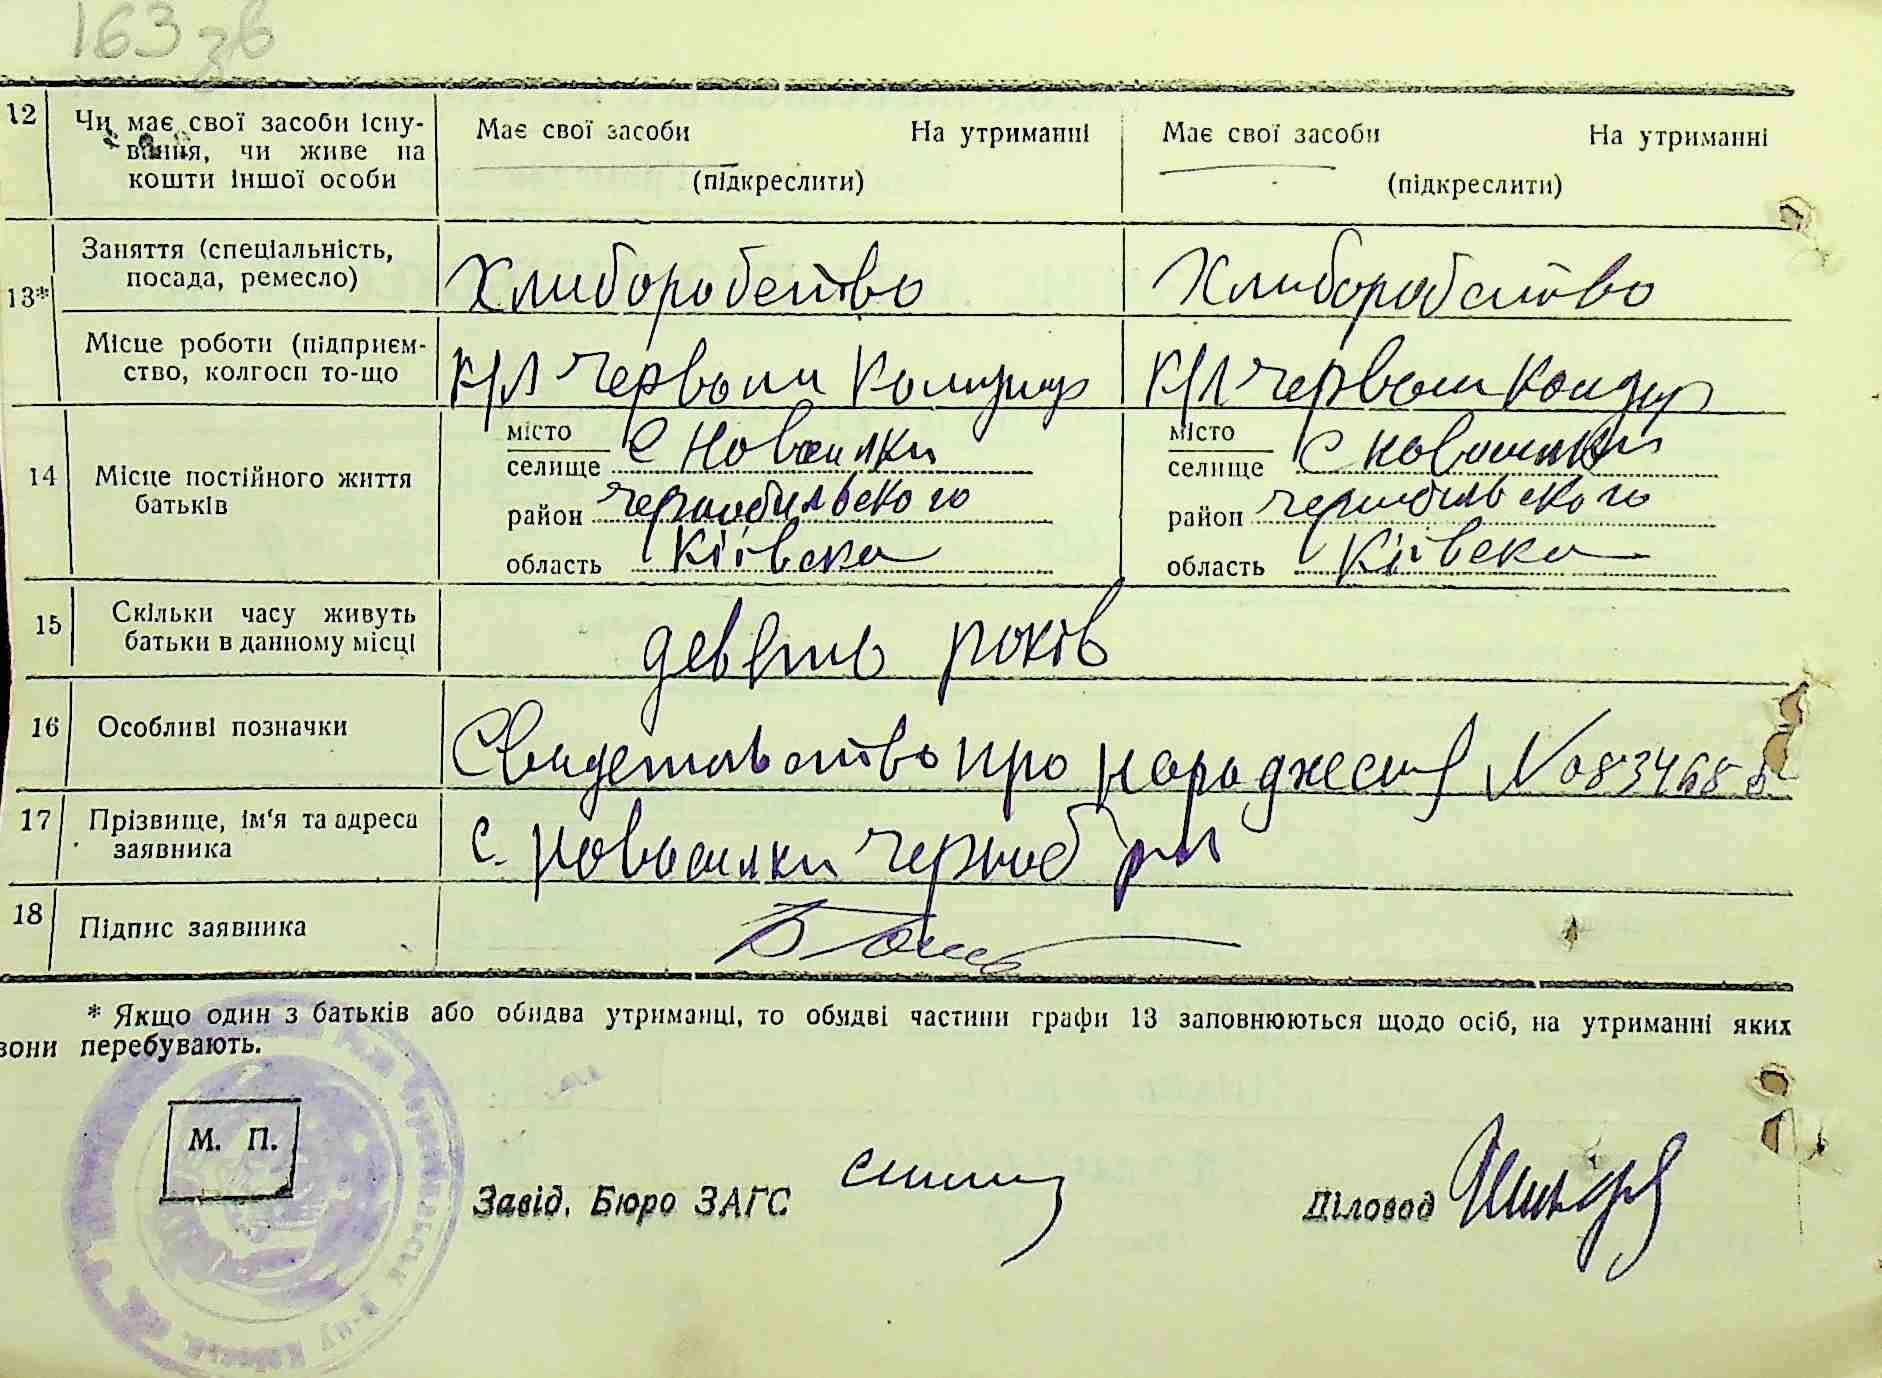 163 зв
12 Чи має свої засоби існу-
вання, чи живе на
кошти іншої особи
Має свої засоби На утриманні
(підкреслити)
Має свої засоби На утриманні
(підкреслити)
13* Заняття (спеціальність,
посада, ремесло)
Хлиборобство
Хлиборобство
Місце роботи (підприєм-
ство, колгосп то-що
К/Л Червони Командир
К/Л Червони Командир
14 Місце постійного життя
батьків
місто
селище С Новосилки
район Чернобильского
область Кіівска
місто
селище С Новосилки
район Чернобильского
область Кіівска
15 Скільки часу живуть
батьки в данному місці
девять років
16 Особливі позначки
Свидетильство про народжения №
17 Прізвище, ім'я та адреса
заявника
с. Новосилки Черноб р-н
18 Підпис заявника
* Якщо один з батьків або обидва утриманці, то обидві частини графи 13 заповнюються щодо осіб, на утриманні яких
вони перебувають.
М. П.
Завід. Бюро ЗАГС
Діловод